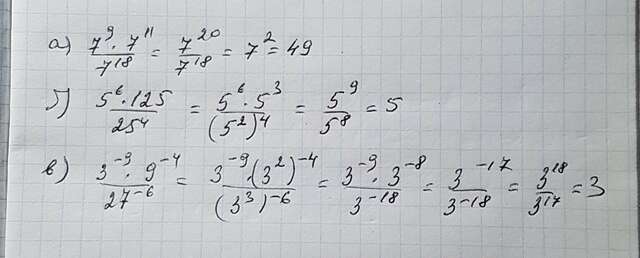 а) 7⁹·7¹¹/7¹⁸ = 7²⁰/7¹⁸ = 7² = 49
б) 5⁶·125/25⁴ = 5⁶·5³/(5²)⁴ = 5⁹/5⁸ = 5
в) 3⁻⁹·9⁻⁴/27⁻⁶ = 3⁻⁹·(3²)⁻⁴/(3³)⁻⁶ = 3⁻⁹·3⁻⁸/3⁻¹⁸ = 3⁻¹⁷/3⁻¹⁸ = 3¹⁸/3¹⁷ = 3